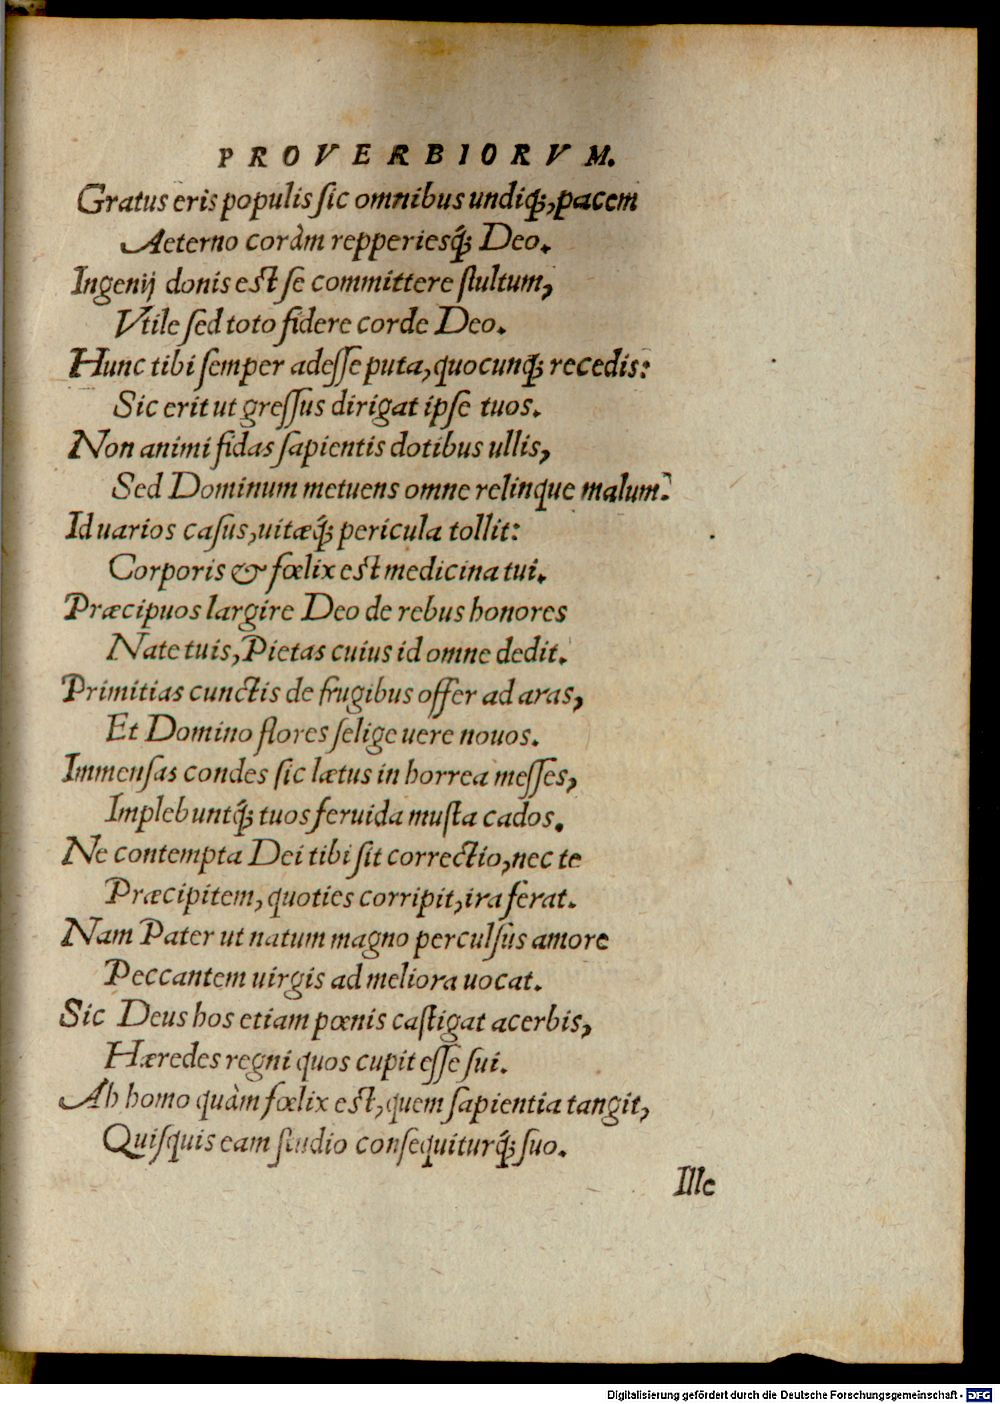 PROVERBIORVM.
Gratus eris populis sic omnibus undiq́;, pacem
Aeterno coràm repperiesq́; Deo.
Ingenij donis est se committere stultum,
Vtile sed toto fidere corde Deo.
Hunc tibi semper adesse puta, quocunq́; recedis:
Sic erit ut gressus dirigat ipse tuos.
Non animi fidas sapientis dotibus ullis,
Sed Dominum metuens omne relinque malum.
Id uarios casus, uitæq́; pericula tollit:
Corporis & fœlix est medicina tui.
Præcipuos largire Deo de rebus honores
Nate tuis, Pietas cuius id omne dedit.
Primitias cunctis de frugibus offer ad aras,
Et Domino flores selige uere nouos.
Immensas condes sic lætus in horrea messes,
Implebuntq́; tuos feruida musta cados.
Ne contempta Dei tibi sit correctio, nec te
Præcipitem, quoties corripit, ira ferat.
Nam Pater ut natum magno perculsus amore
Peccantem uirgis ad meliora uocat.
Sic Deus hos etiam pœnis castigat acerbis,
Hæredes regni quos cupit esse sui.
Ah homo quàm fœlix est, quem sapientia tangit,
Quisquis eam studio consequiturq́; suo.
Ille
Digitalisierung gefördert durch die Deutsche Forschungsgemeinschaft - DFG